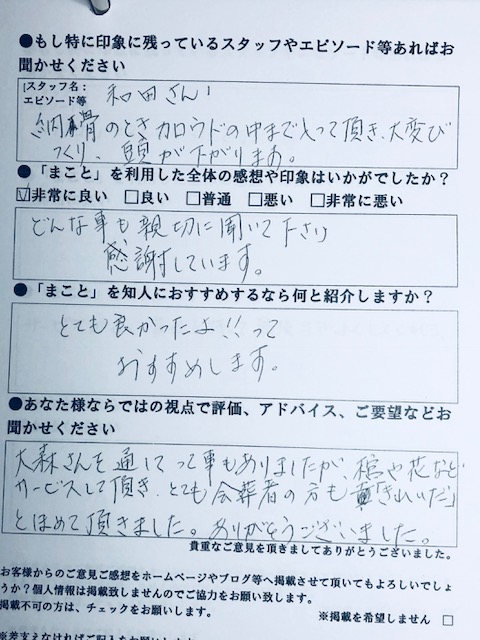 ●もし特に印象に残っているスタッフやエピソード等あればお
聞かせください
[スタッフ名： 和田さん
エピソード等
納骨のときカロウドの中まで入って頂き、大変び
っくり、頭が下がります。
●「まこと」を利用した全体の感想や印象はいかがでしたか？
☑非常に良い □良い □普通 □悪い □非常に悪い
どんな事も親切に聞いて下さり
感謝しています。
●「まこと」を知人におすすめするなら何と紹介しますか？
とても良かったよ!!って
おすすめします。
●あなた様ならではの視点で評価、アドバイス、ご要望などお
聞かせください
大森さんを通してって事もありましたが、棺や花など
サービスして頂き、とても会葬者の方も「きれいだ」
とほめて頂きました。ありがとうございました。
貴重なご意見を頂きましてありがとうございました。
お客様からのご意見ご感想をホームページやブログ等へ掲載させて頂いてもよろしいでしょ
うか？個人情報は掲載致しませんのでご協力をお願い致します。
掲載不可の方は、チェックをお願いします。 ※掲載を希望しません □
※差支えなければご記入をお願い